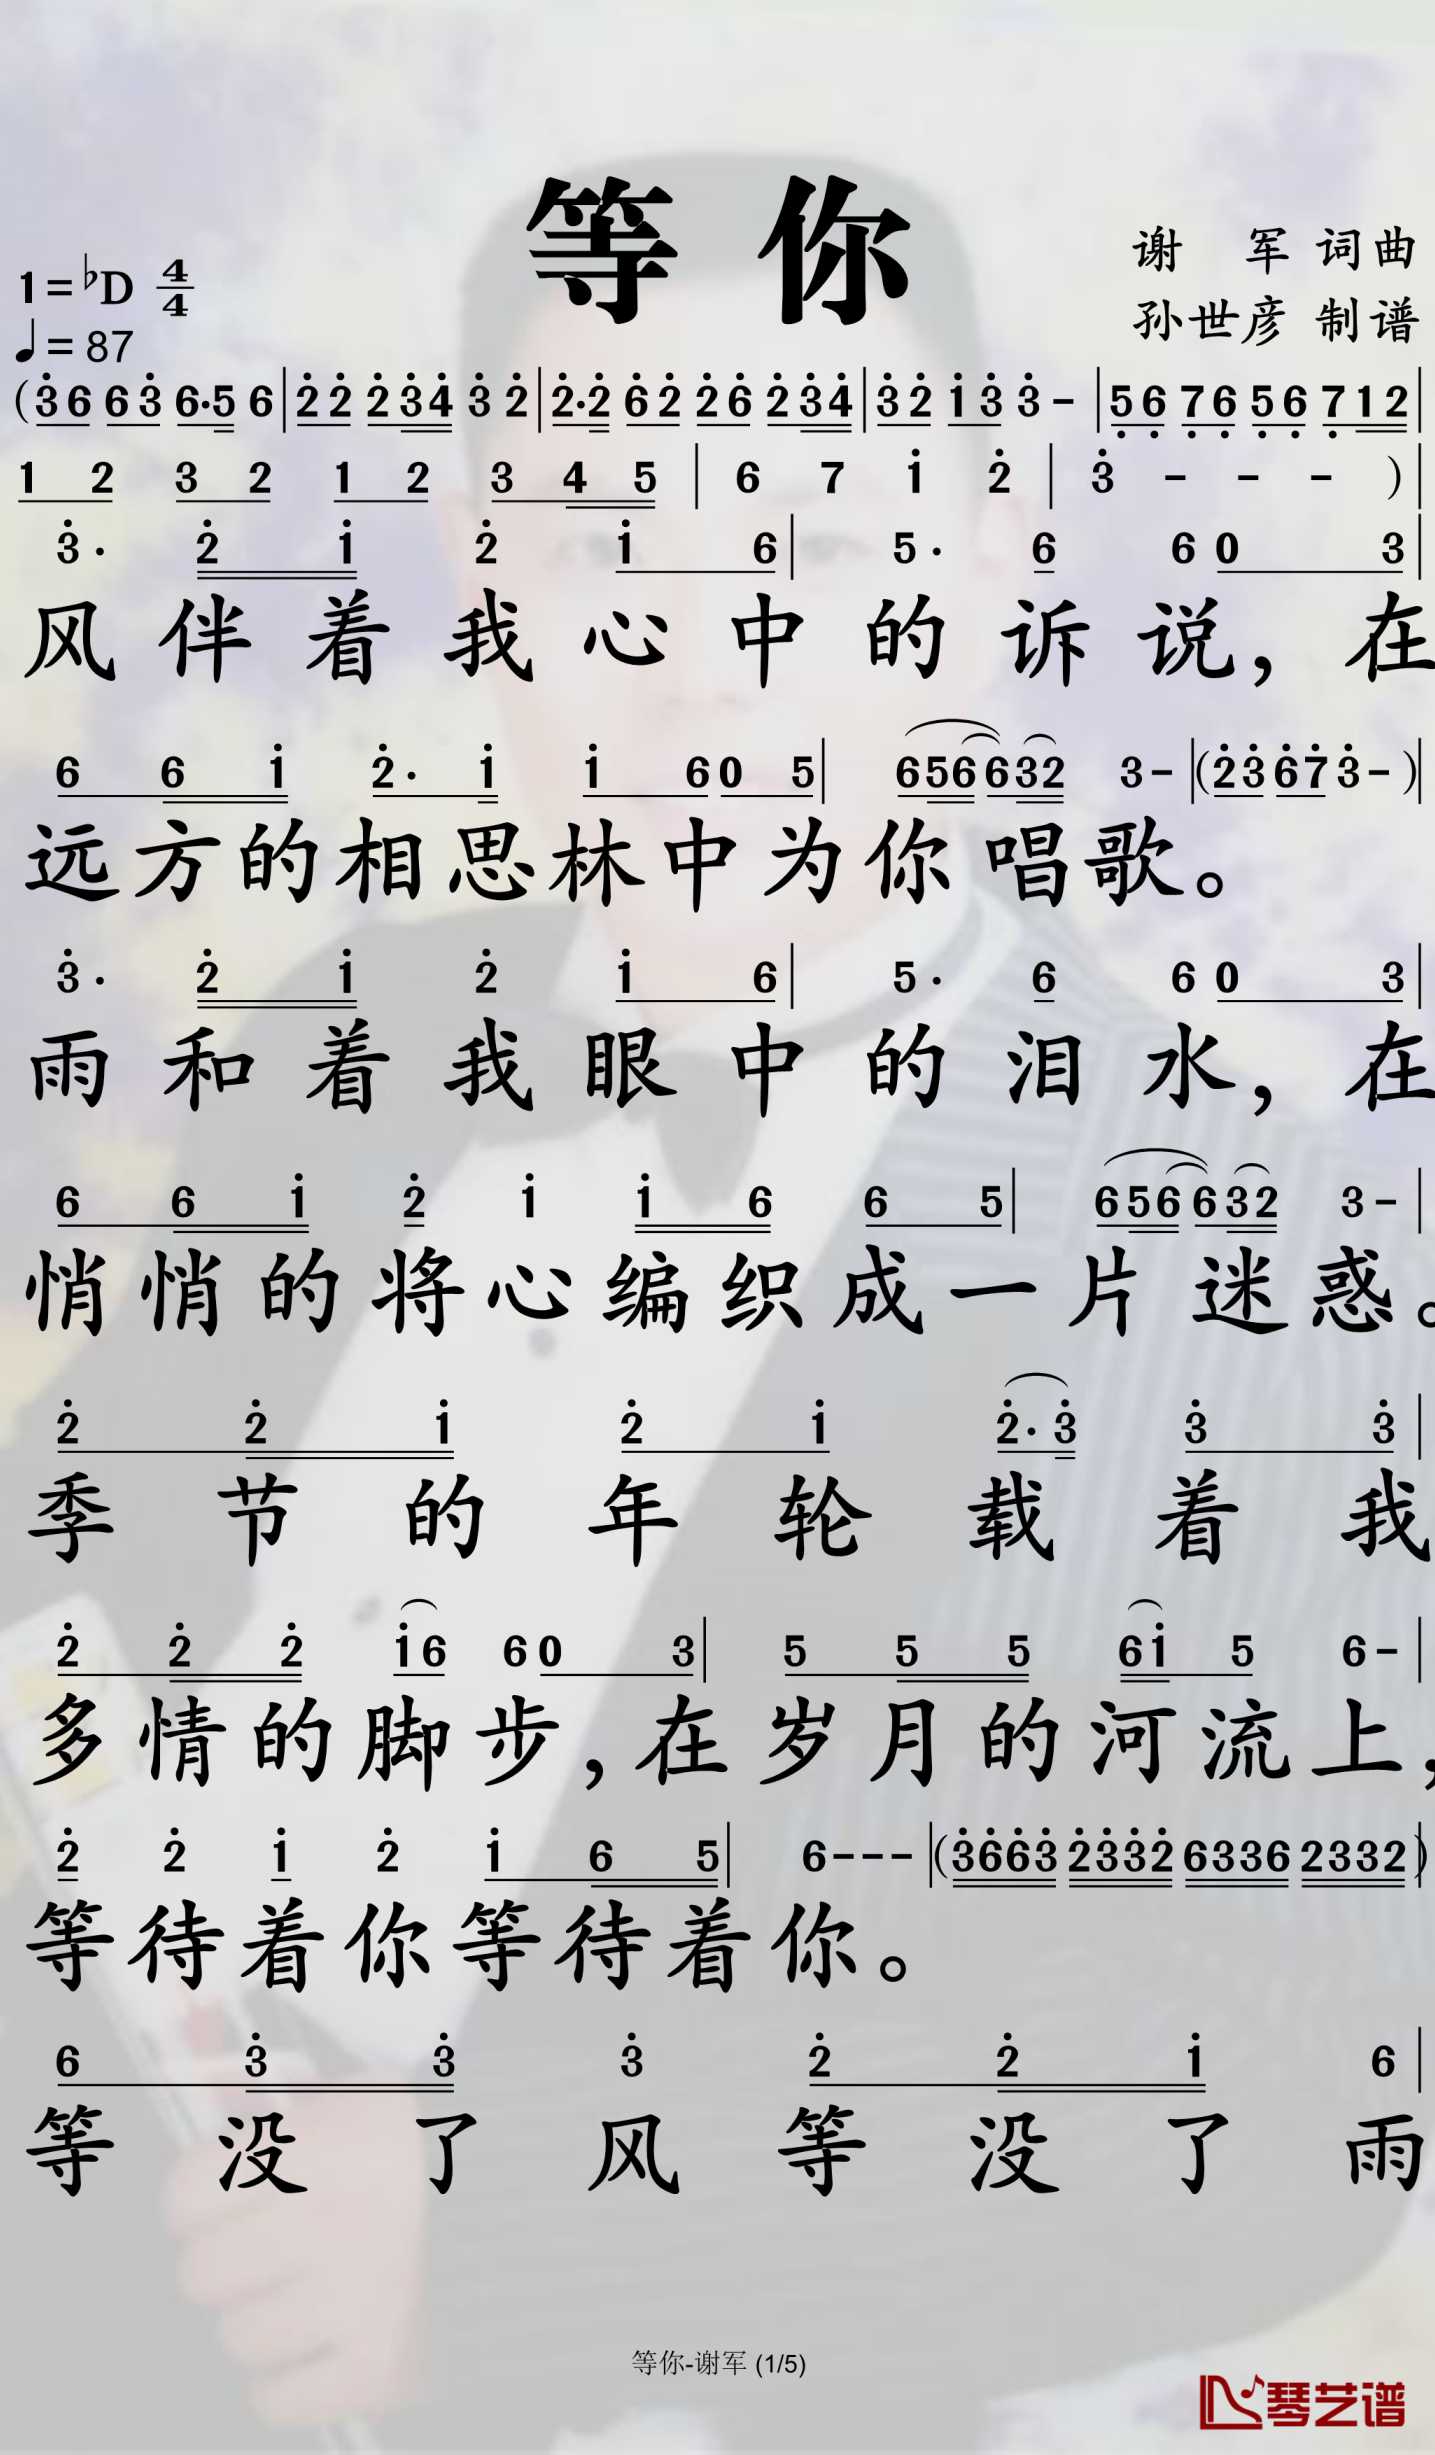 等你
谢 军 词曲
孙世彦 制谱
1=♭D 4/4
♩=87
(3̇6 63̇ 6·5 6|2̇2̇ 2̇3̇4̇ 3̇ 2̇|2̇·2̇ 6̇2̇ 2̇6̇ 2̇3̇4̇|3̇2̇ 1̇3̇ 3̇ -|5̣6̣ 7̣6̣ 5̣6̣ 7̣12|
1 2 3 2 1 2 3 4 5|6 7 1̇ 2̇|3̇ - - - )|
3̇· 2̇ 1̇ 2̇ 1̇ 6|5· 6 6 0 3|
风伴着我心中的诉说，在
6 6 1̇ 2̇· 1̇ 1̇ 6 0 5|656632 3-|(2̇3̇ 6̇7̇ 3̇-)|
远方的相思林中为你唱歌。
3̇· 2̇ 1̇ 2̇ 1̇ 6|5· 6 6 0 3|
雨和着我眼中的泪水，在
6 6 1̇ 2̇ 1̇ 1̇ 6 6 5|656632 3-|
悄悄的将心编织成一片迷惑。
2̇ 2̇ 1̇ 2̇ 1̇ 2̇·3̇ 3̇ 3̇|
季节的年轮载着我
2̇ 2̇ 2̇ 1̇6 6 0 3|5 5 5 61̇ 5 6-|
多情的脚步，在岁月的河流上，
2̇ 2̇ 1̇ 2̇ 1̇ 6 5|6---|(3̇6̇6̇3̇ 2̇3̇3̇2̇ 6336 2332)|
等待着你等待着你。
6 3̇ 3̇ 3̇ 2̇ 2̇ 1̇ 6|
等没了风等没了雨
等你-谢军 (1/5)
琴艺谱